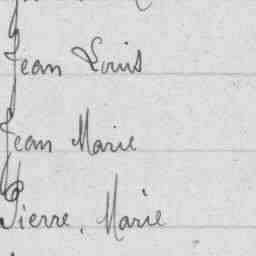 Jean Louis
Jean Marie
Pierre, Marie